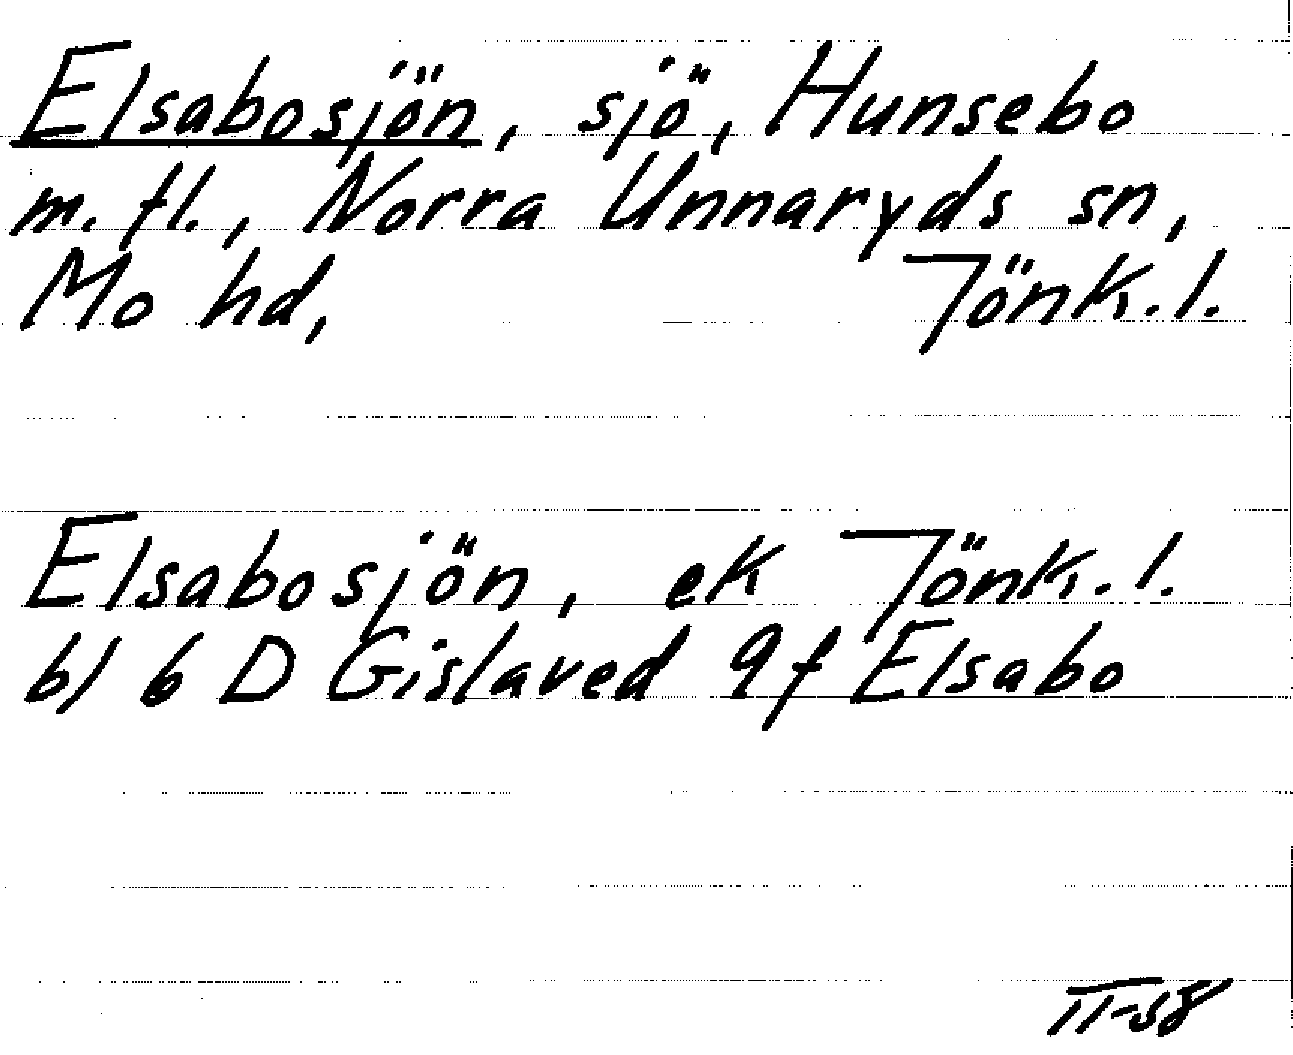 Elsabosjön, sjö, Hunsebo
m. fl., Norra Unnaryds sn,
Mo hd, Jönk. l.
Elsabosjön, ek Jönk. l.
bl 6 D Gislaved 9f Elsabo
II-58